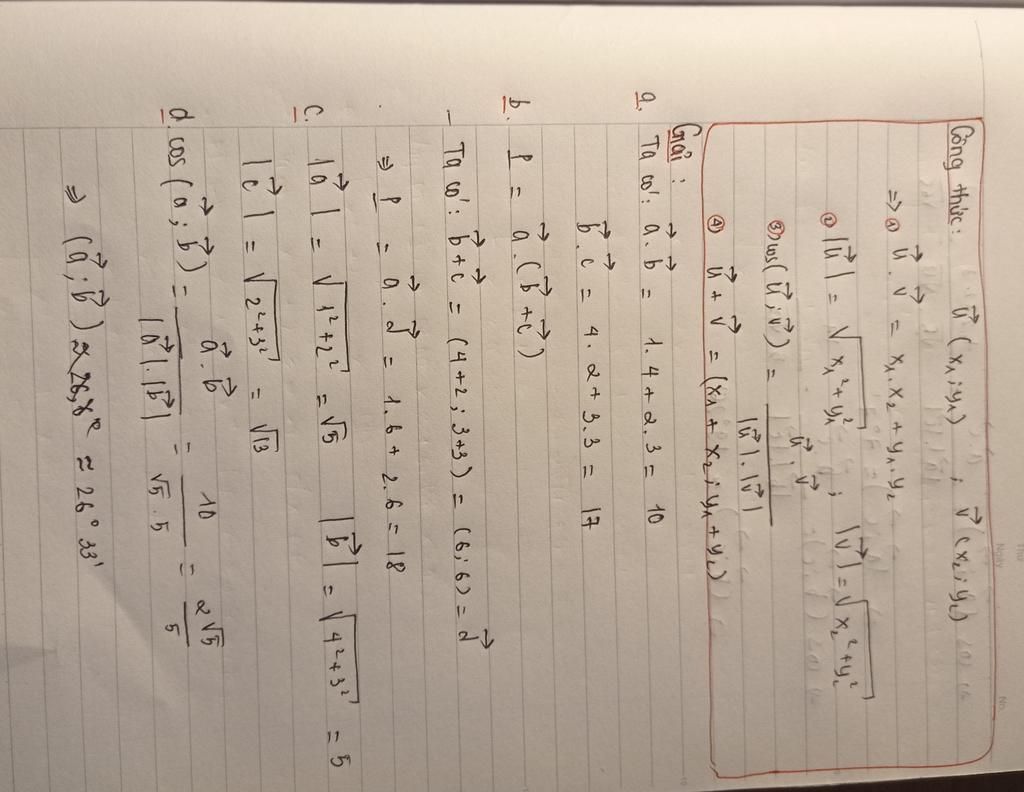 Công thức: u⃗ (x₁; y₁) ; v⃗ (x₂; y₂)
⇒ ① u⃗ . v⃗ = x₁.x₂ + y₁.y₂
② |u⃗| = √(x₁² + y₁²) ; |v⃗| = √(x₂² + y₂²)
③ cos(u⃗; v⃗) = (u⃗ . v⃗) / (|u⃗| . |v⃗|)
④ u⃗ + v⃗ = (x₁ + x₂; y₁ + y₂)
Giải:
a. Ta có: a⃗ . b⃗ = 1.4 + 2.3 = 10
b⃗ . c⃗ = 4.2 + 3.3 = 17
b. P = a⃗ . (b⃗ + c⃗)
- Ta có: b⃗ + c⃗ = (4+2; 3+3) = (6; 6) = d⃗
⇒ P = a⃗ . d⃗ = 1.6 + 2.6 = 18
c. |a⃗| = √(1² + 2²) = √5 |b⃗| = √(4² + 3²) = 5
|c⃗| = √(2² + 3²) = √13
d. cos(a⃗; b⃗) = (a⃗ . b⃗) / (|a⃗| . |b⃗|) = 10 / (√5 . 5) = 2√5 / 5
⇒ (a⃗; b⃗) ≈ 26°33'